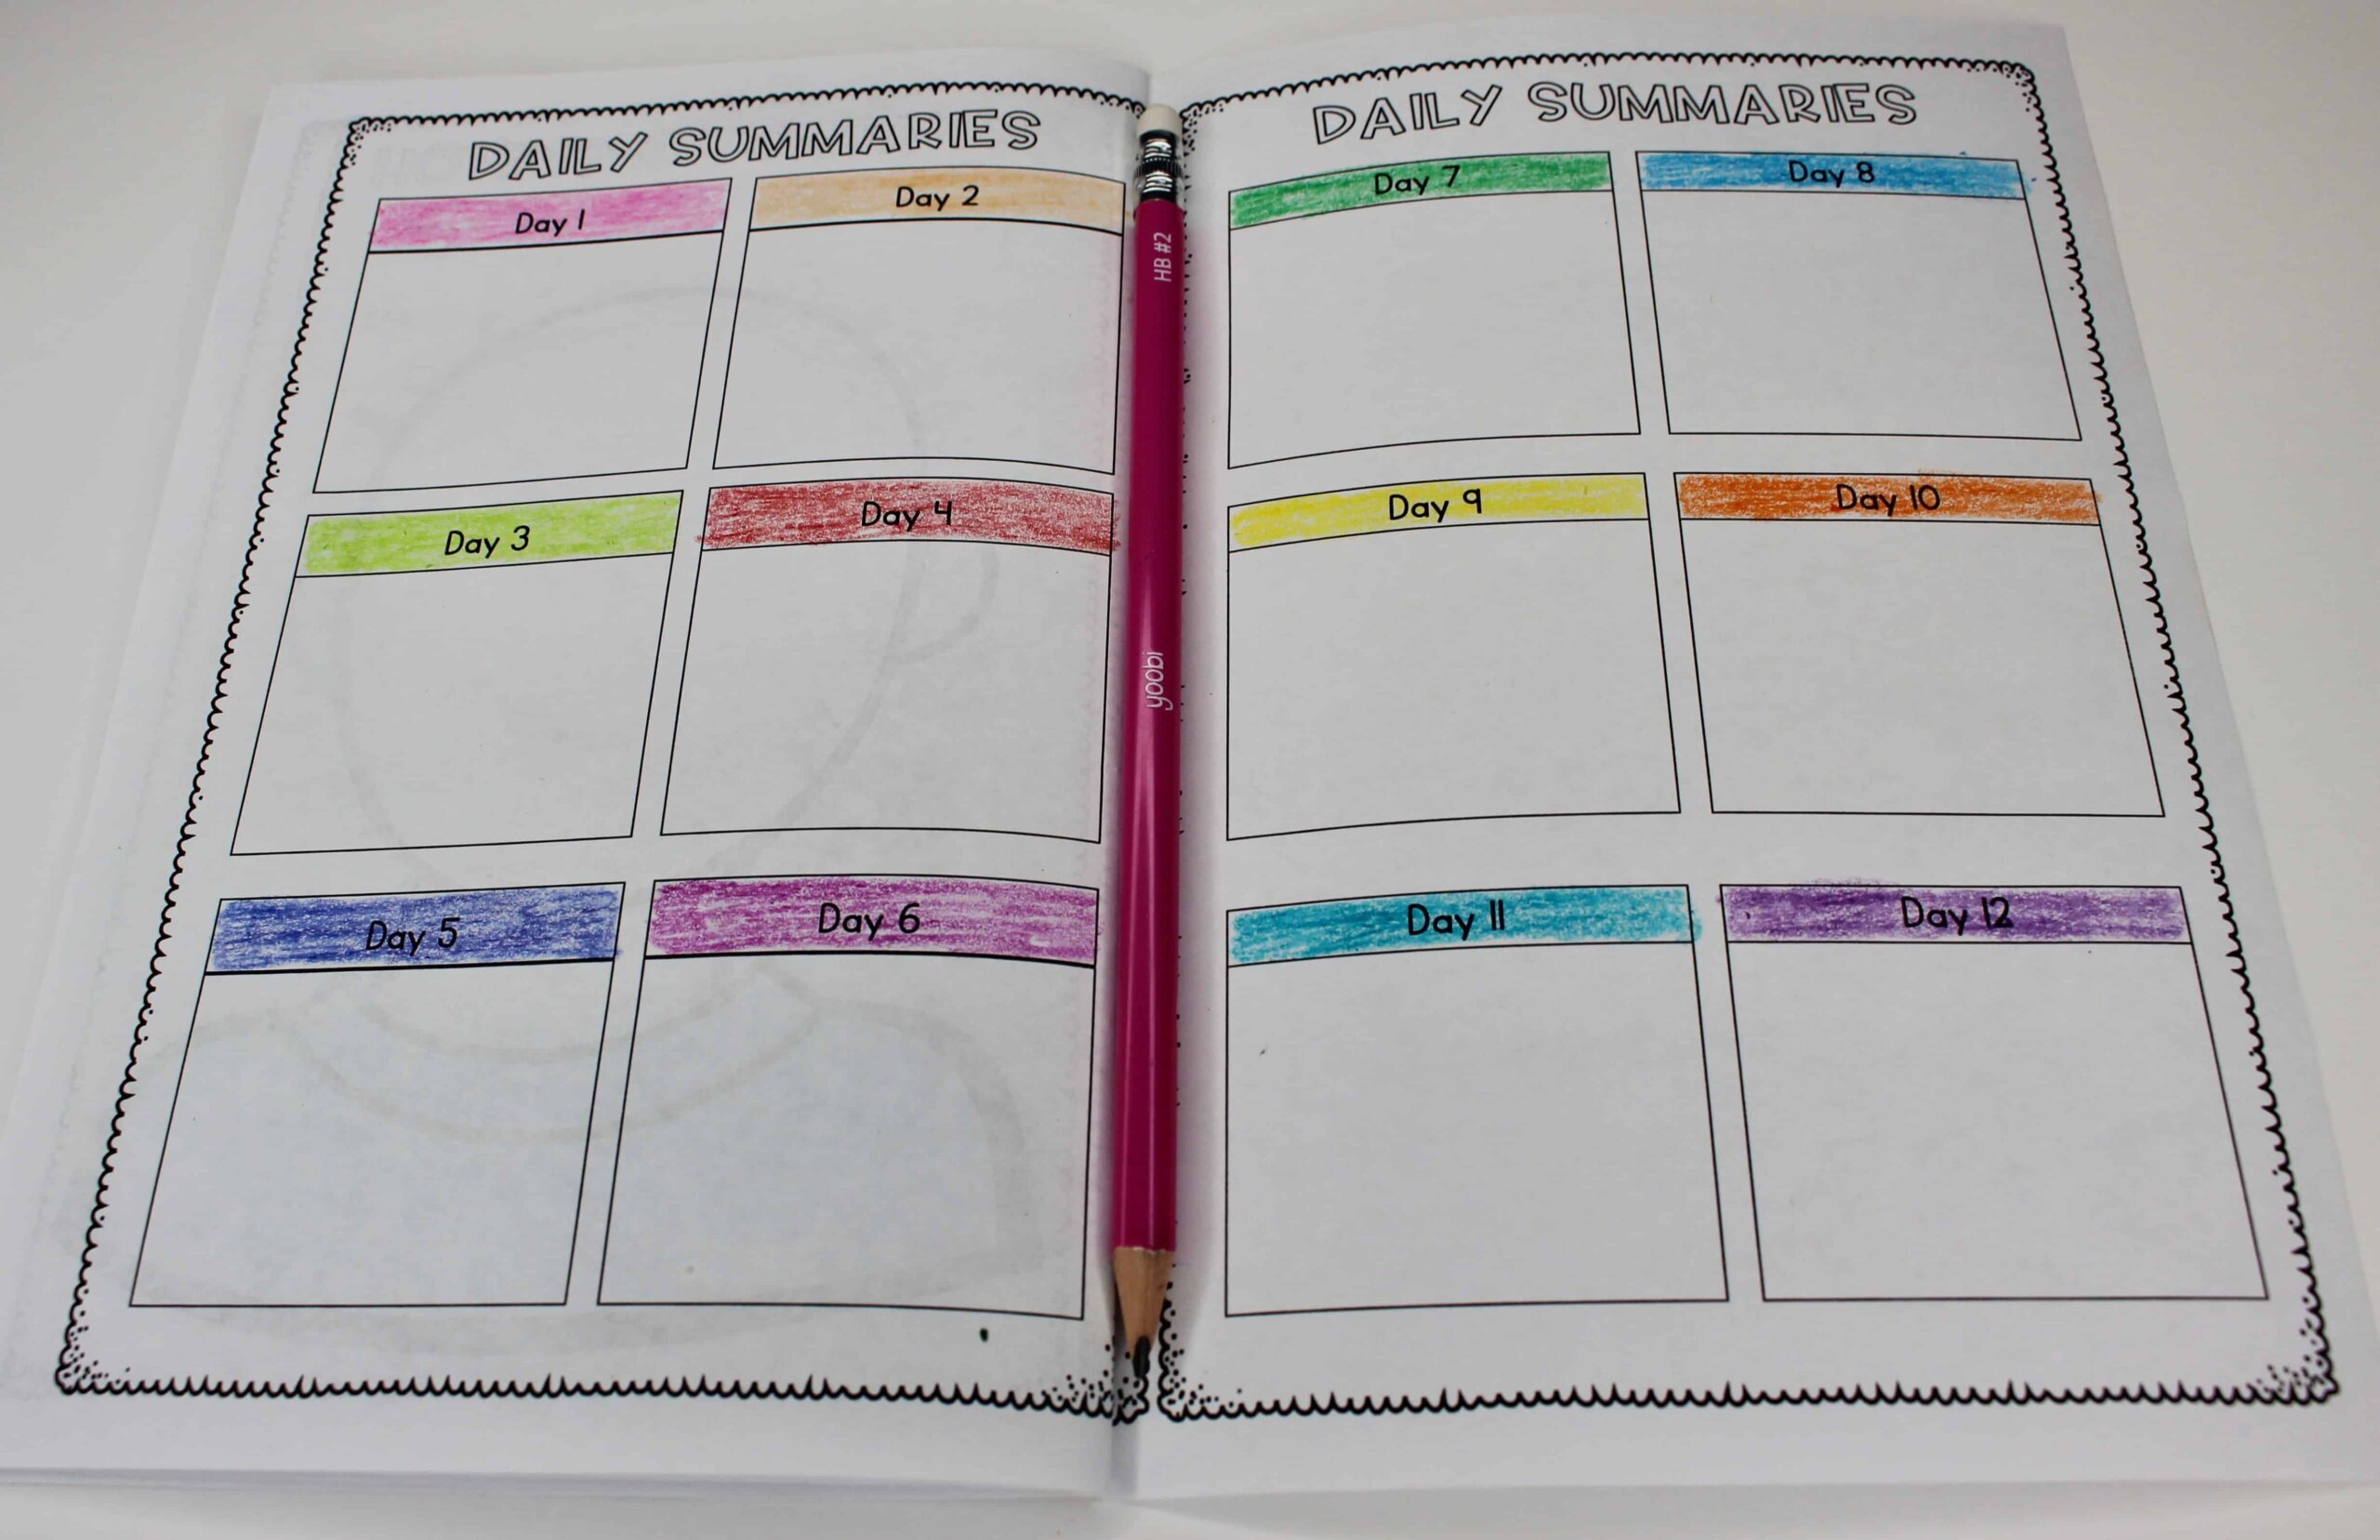 DAILY SUMMARIES
Day 1
Day 2
Day 3
Day 4
Day 5
Day 6
HB #2
yoobi
DAILY SUMMARIES
Day 7
Day 8
Day 9
Day 10
Day 11
Day 12